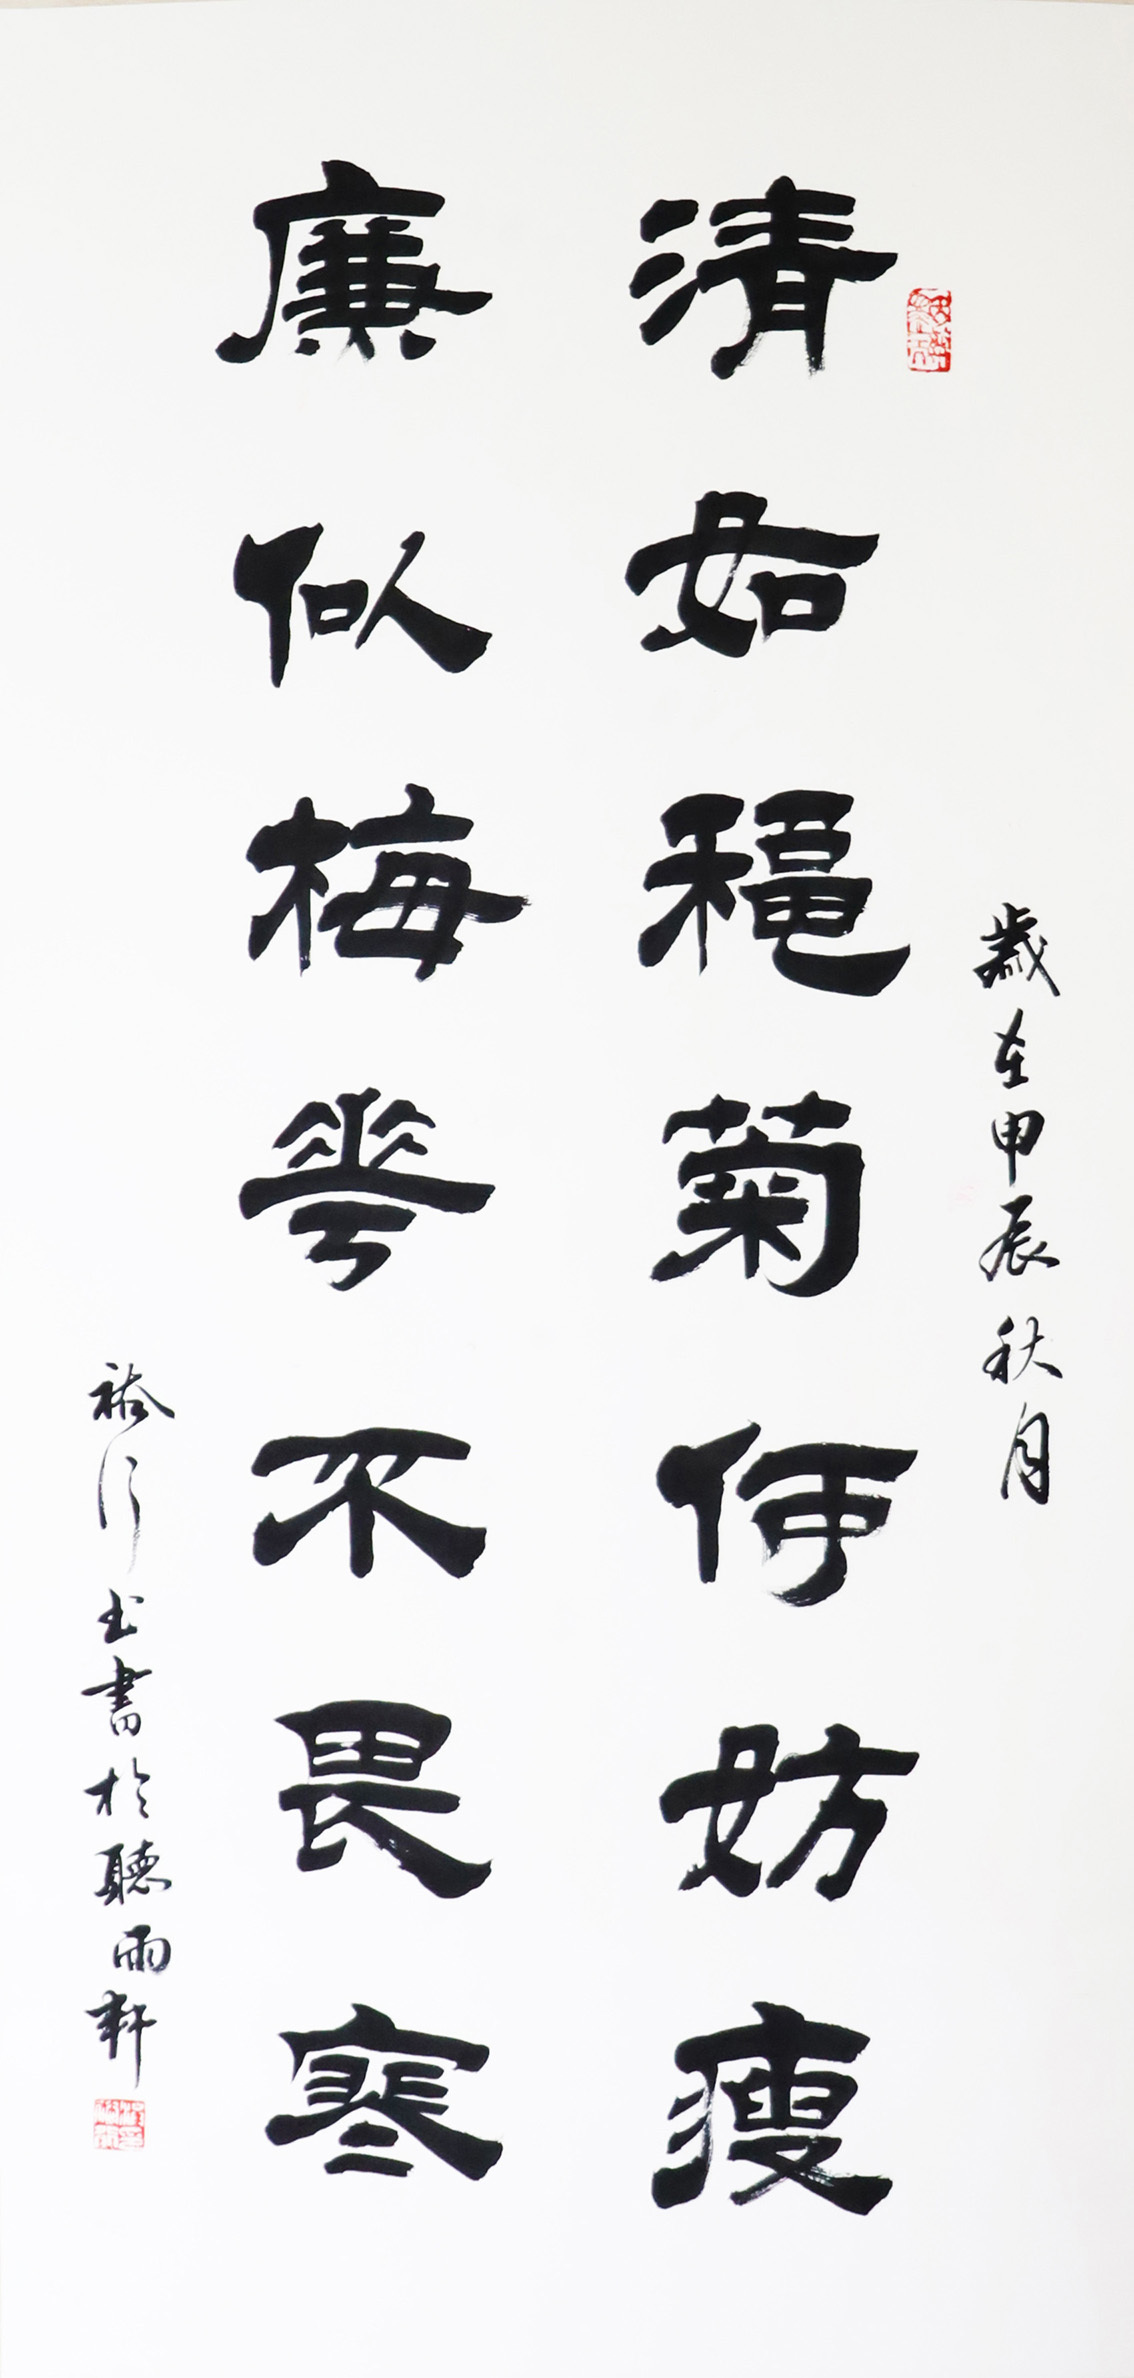 歲在甲辰秋月
清如穐菊何妨瘦
廉似梅花不畏寒
書於聽雨軒